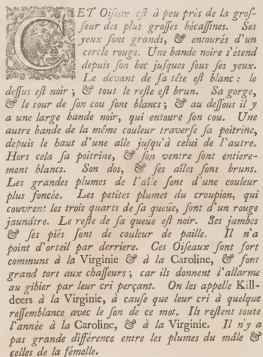 CET Oiseau est à peu près de la grosseur
des plus grosses bécassines. Ses
yeux sont grands, & entourés d'un
cercle rouge. Une bande noire s'étend
depuis son bec jusques sous ses yeux.
Le devant de sa tête est blanc: le
dessus est noir; & tout le reste est brun. Sa gorge,
& le tour de son cou sont blancs; & au dessous il y
a une large bande noir, qui entoure son cou. Une
autre bande de la même couleur traverse sa poitrine,
depuis le haut d'une aîle jusqu'à celui de l'autre.
Hors cela sa poitrine, & son ventre sont entierement
blancs. Son dos, & ses aîles sont bruns.
Les grandes plumes de l'aîle sont d'une couleur
plus foncée. Les petites plumes du croupion, qui
couvrent les trois quarts de sa queüe, sont d'un rouge
jaunâtre. Le reste de sa queüe est noir. Ses jambes
& ses piés sont de couleur de paille. Il n'a
point d'orteil par derriere. Ces Oiseaux sont fort
communs à la Virginie & à la Caroline, & font
grand tort aux chasseurs; car ils donnent l'allarme
au gibier par leur cri perçant. On les appelle Kill-
deers à la Virginie, à cause que leur cri à quelque
ressemblance avec le son de ce mot. Ils restent toute
l'année à la Caroline, & à la Virginie. Il n'y a
pas grande différence entre les plumes du mâle &
celles de la fémelle.